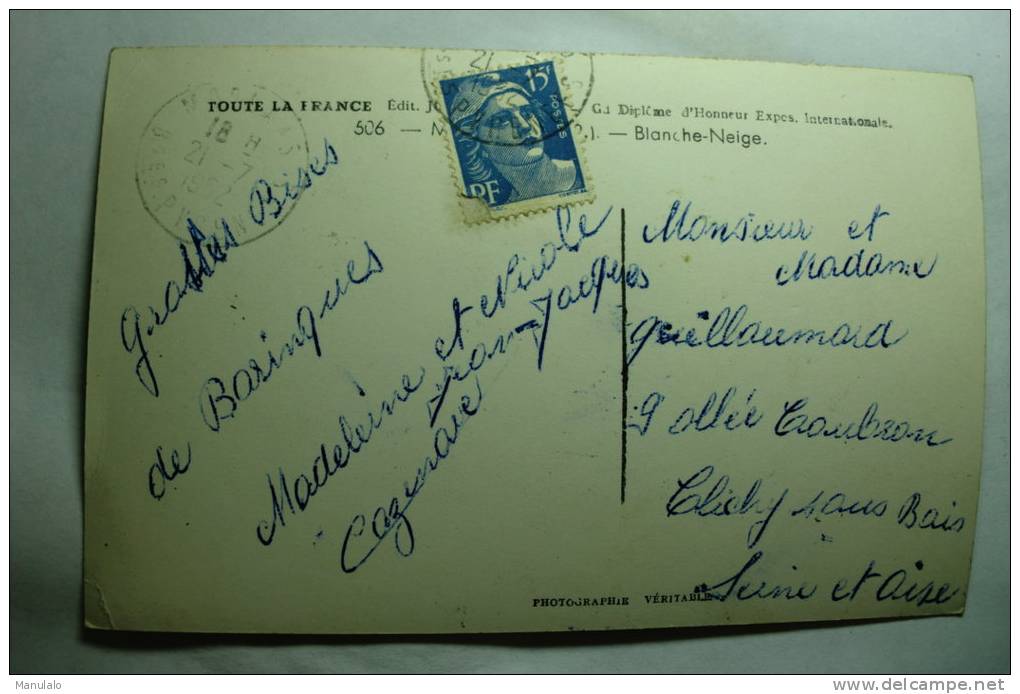 TOUTE LA FRANCE Édit. Gd Diplôme d'Honneur Expos. Internationale.
506 — — Blanche-Neige.
15F
POSTES
RF
18 H
21
Grosses Bises
de Bazingues
Madeleine et Nicole
Jean-Jacques
Monsieur et
Madame
Guillaumard
9 allée Coubron
Clichy sous Bois
Seine et Oise
PHOTOGRAPHIE VÉRITABLE
Manulalo
delcampe.net